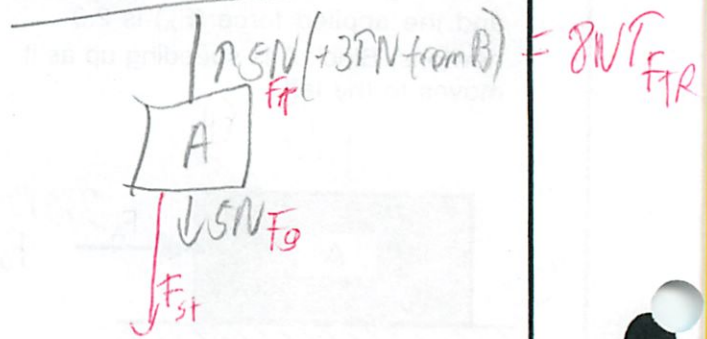 ↑5N(+3↑N from B) = 8N↑
F_T
F_TR
A
↓5N F_g
F_ST